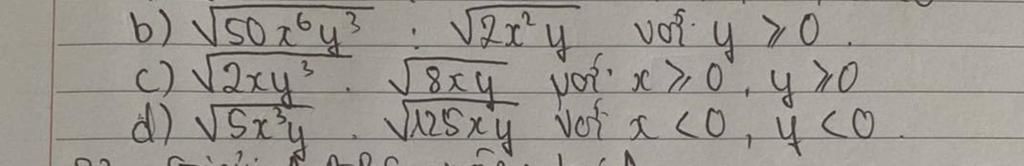 b) √50x⁶y³ : √2x²y với y ≥ 0.
c) √2xy³ . √8xy với x ≥ 0, y ≥ 0
d) √5x³y . √125xy với x < 0, y < 0.